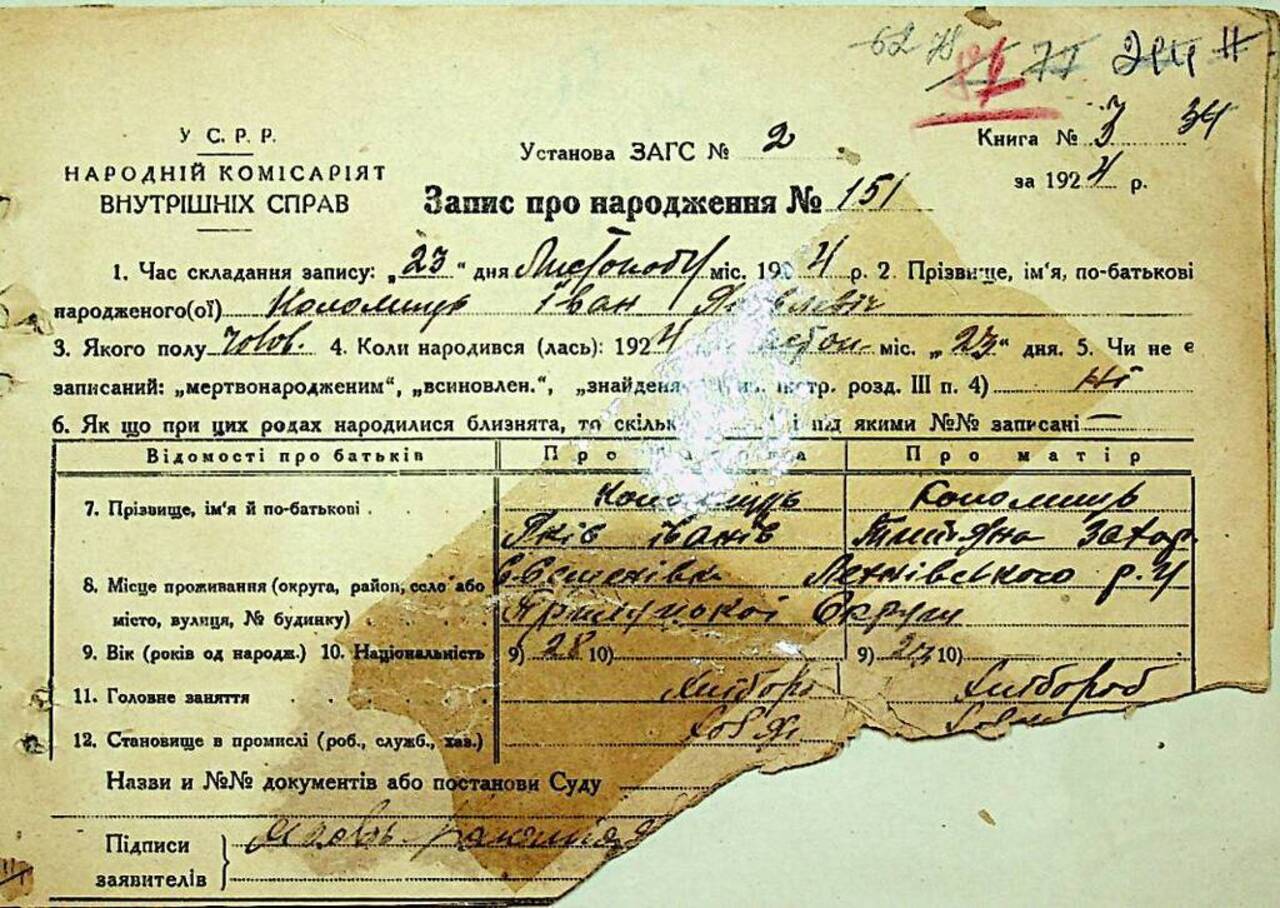 62 78 77
У С. Р. Р.
НАРОДНІЙ КОМІСАРІЯТ
ВНУТРІШНІХ СПРАВ
Установа ЗАГС № 2
Книга № 3 34
за 1924 р.
Запис про народження № 151
1. Час складання запису: „23“ дня Листопаду міс. 1924 р. 2. Прізвище, ім'я, по-батькові
народженого(ої) Коломиць Іван Яковлевіч
3. Якого полу чолов. 4. Коли народився (лась): 1924 міс. „23“ дня. 5. Чи не є
записаний: „мертвонародженим“, „всиновлен.“, „знайдена розд. III п. 4) Ні
6. Як що при цих родах народилися близнята, то скільк і під якими №№ записані —
Відомості про батьків Про Про матір
7. Прізвище, ім'я й по-батькові . Коломиць Коломиць
Яків Іванів Захар.
8. Місце проживання (округа, район, село або
місто, вулиця, № будинку) . . . . Прилуцької Округи
9. Вік (років од народж.) 10. Національність 9) 28 10) 9) 23 10)
11. Головне заняття . . . . . Хлібороб Хлібороб
12. Становище в промислі (роб., служб., хаз.)
Назви и №№ документів або постанови Суду
Підписи
заявителів